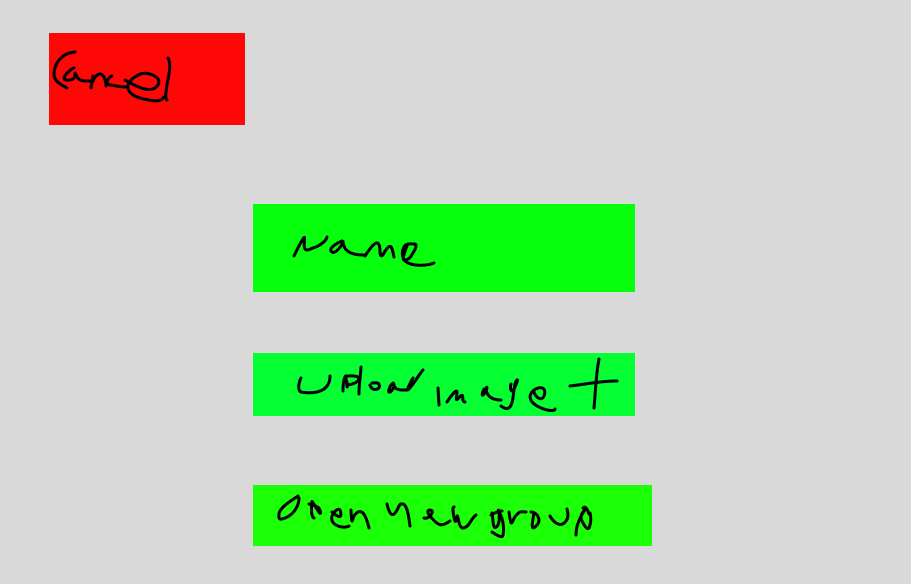 Cancel
Name
Upload image +
Open new group